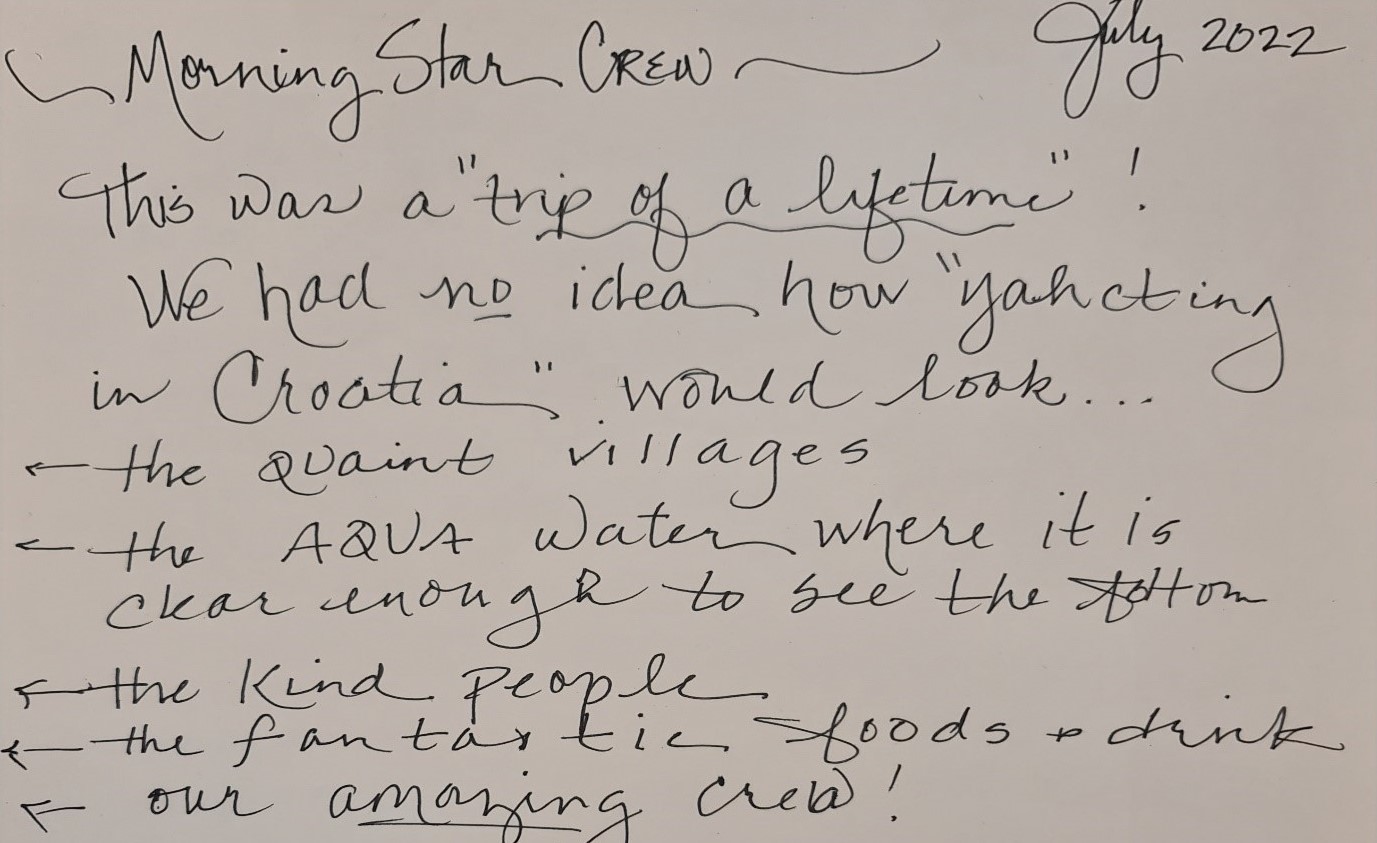 Morning Star CREW July 2022
This was a "trip of a lifetime"!
We had no idea how "yahcting
in Croatia" would look...
← the Quaint villages
← the AQUA water where it is
clear enough to see the bottom
← the Kind people
← the fantastic foods & drink
← our amazing crew!